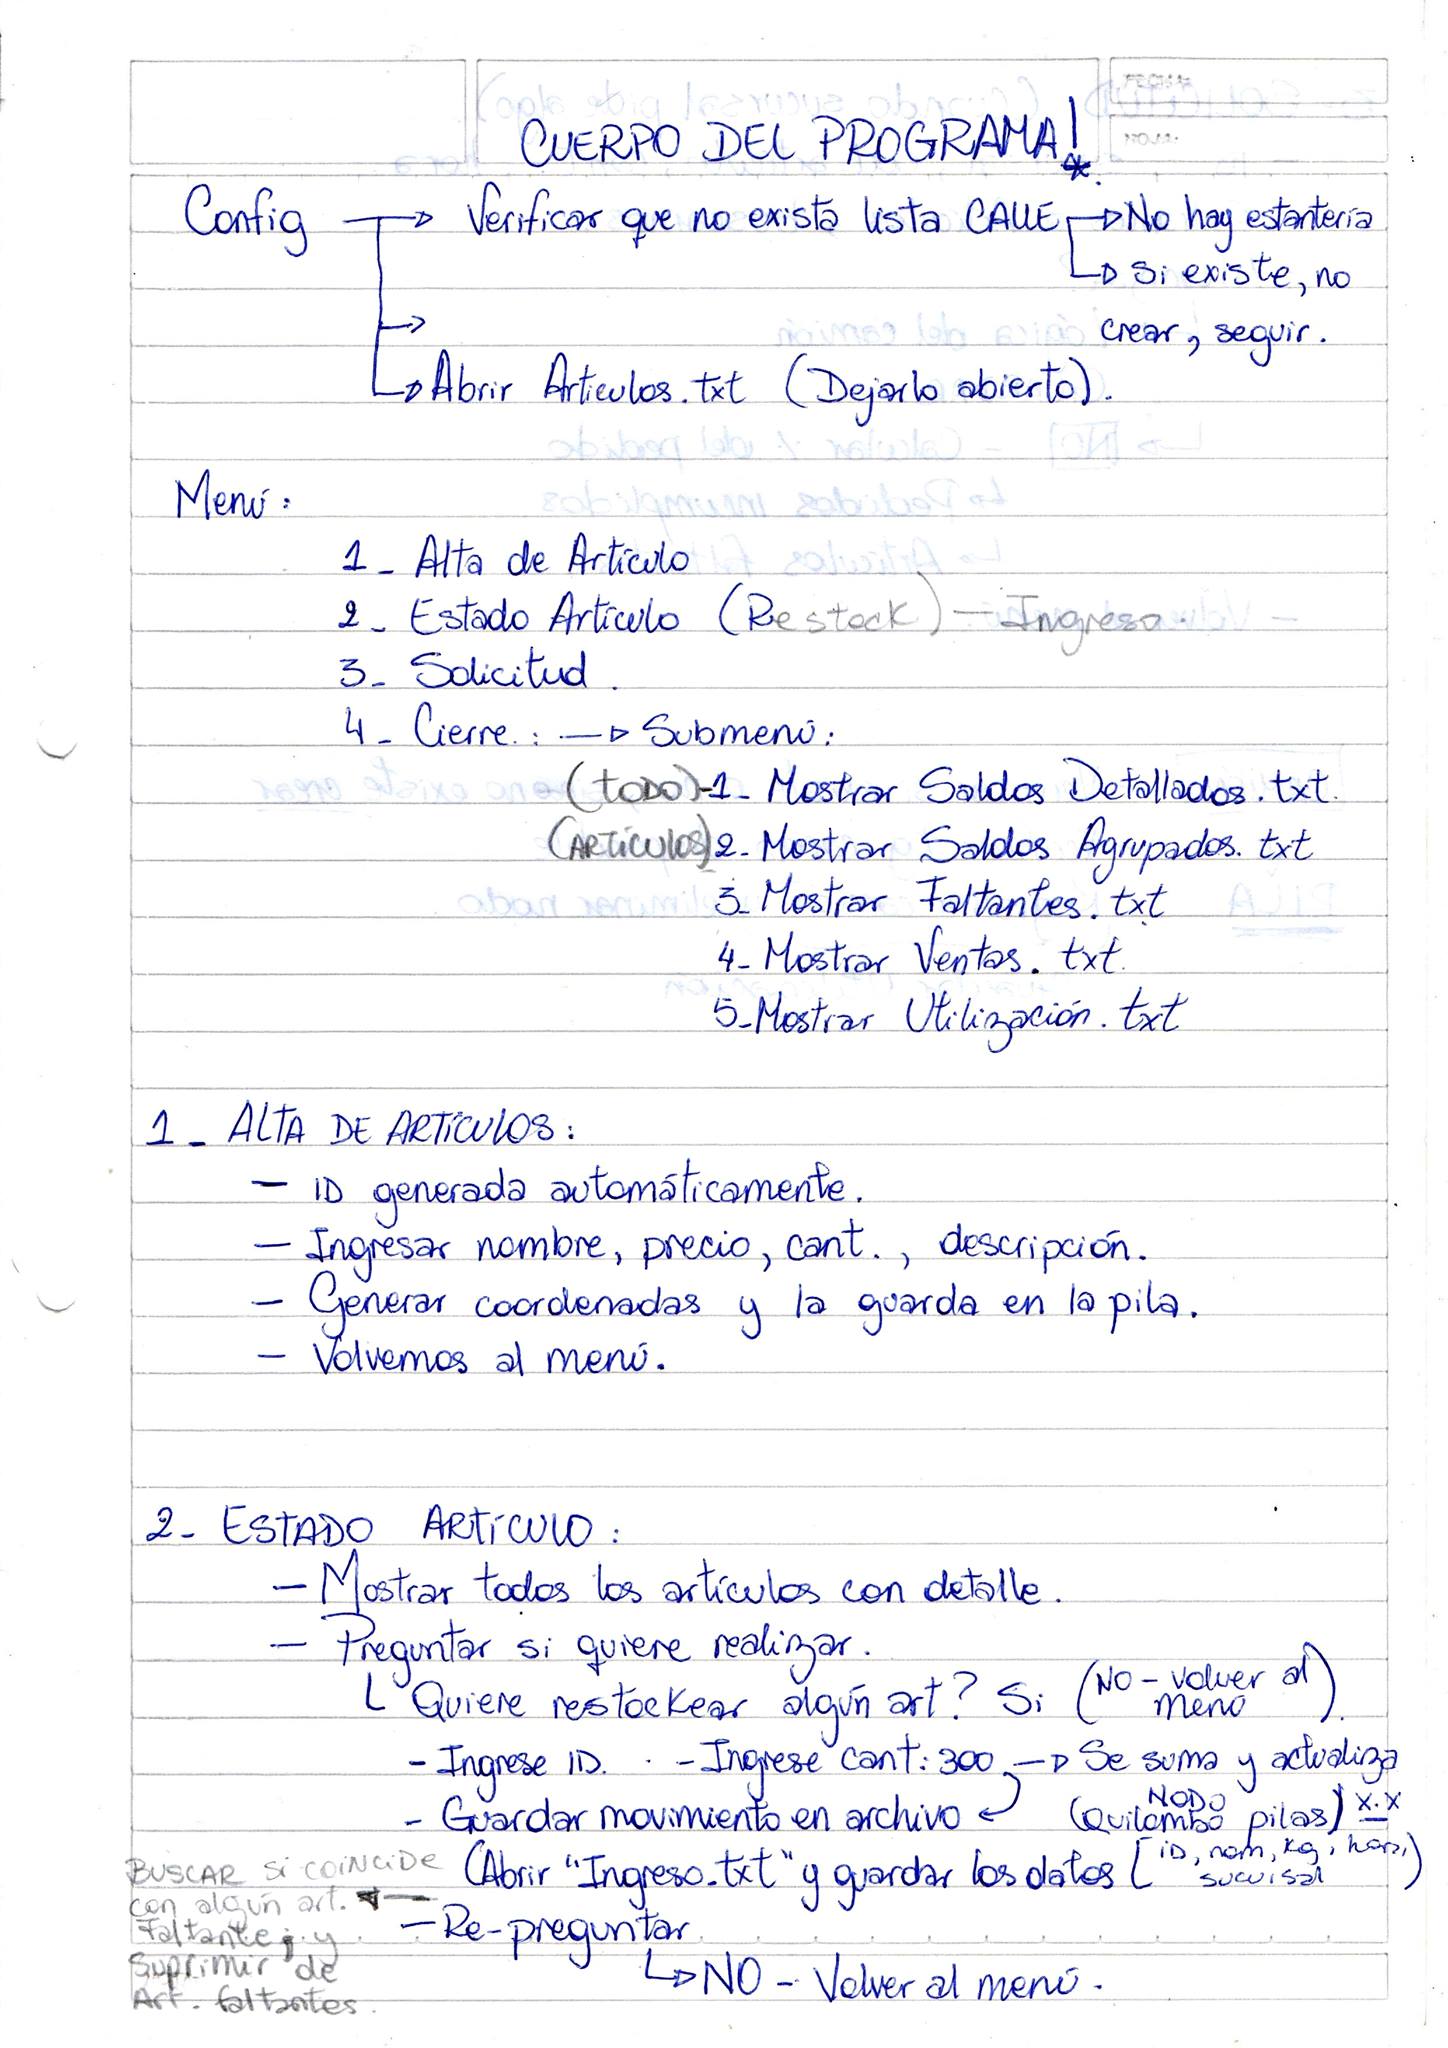 CUERPO DEL PROGRAMA!
*
Config → Verificar que no exista lista CALLE → No hay estantería
→ Si existe, no
crear, seguir.
→
→ Abrir Articulos.txt (Dejarlo abierto).
Menú:
1- Alta de Artículo
2- Estado Artículo (Restock) - Ingreso.
3- Solicitud.
4- Cierre: → Submenú:
(TODO)-1- Mostrar Saldos Detallados.txt.
(ARTÍCULOS) 2- Mostrar Saldos Agrupados.txt
3- Mostrar Faltantes.txt
4- Mostrar Ventas.txt.
5- Mostrar Utilización.txt
1- ALTA DE ARTÍCULOS:
- ID generada automáticamente.
- Ingresar nombre, precio, cant., descripción.
- Generar coordenadas y la guarda en la pila.
- Volvemos al menú.
2- ESTADO ARTÍCULO:
- Mostrar todos los artículos con detalle.
- Preguntar si quiere realizar.
Quiere restockear algún art? Si (NO - volver al menú).
- Ingrese ID. - Ingrese cant: 300 → Se suma y actualiza
NODO
- Guardar movimiento en archivo (Quilombo pilas) x.x
(Abrir "Ingreso.txt" y guardar los datos [ID, nom, kg, hora, sucursal)
- Re-preguntar
→ NO - Volver al menú.
BUSCAR si COINCIDE
con algún art.
Faltante; y
Suprimir de
Art. faltantes.